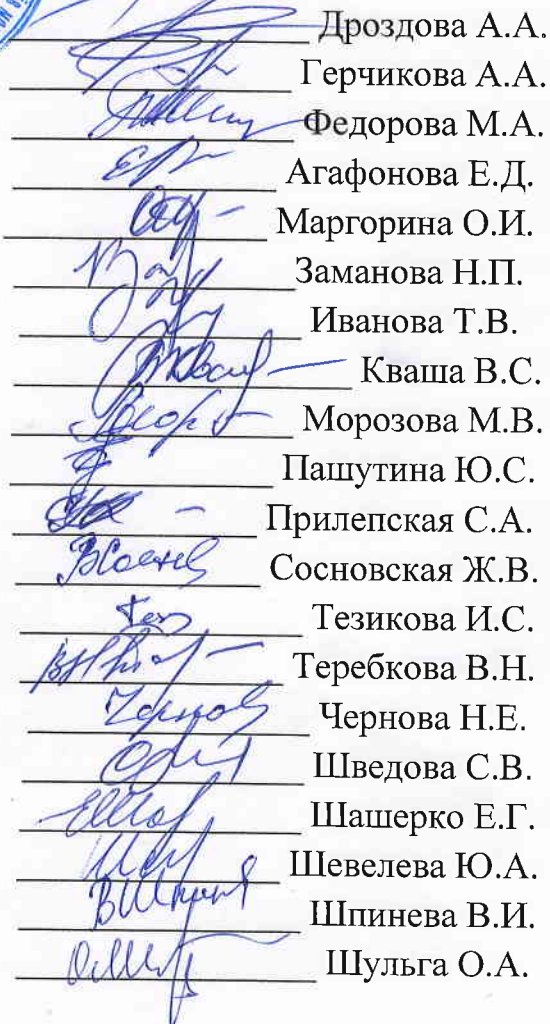 Дроздова А.А.
Герчикова А.А.
Федорова М.А.
Агафонова Е.Д.
Маргорина О.И.
Заманова Н.П.
Иванова Т.В.
Кваша В.С.
Морозова М.В.
Пашутина Ю.С.
Прилепская С.А.
Сосновская Ж.В.
Тезикова И.С.
Теребкова В.Н.
Чернова Н.Е.
Шведова С.В.
Шашерко Е.Г.
Шевелева Ю.А.
Шпинева В.И.
Шульга О.А.